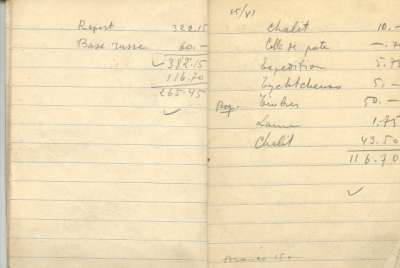 Report 322.15
Base russe 60.-
382.15
116.70
265.45
15/VI
Chalet 10.-
Colle de pate -.70
Expedition 5.75
5.-
Timbres 50.-
1.75
Chalet 43.50
116.70